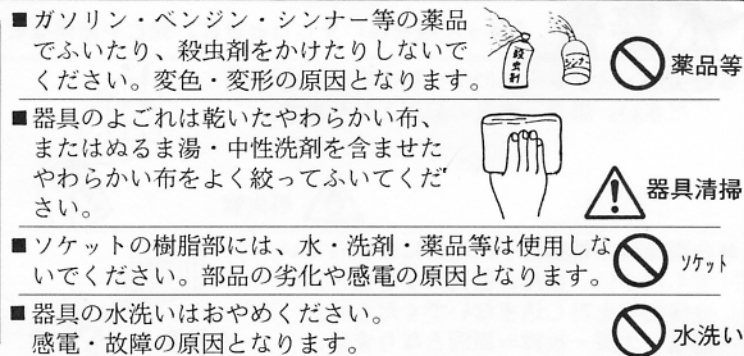 ■ガソリン・ベンジン・シンナー等の薬品
でふいたり、殺虫剤をかけたりしないで
ください。変色・変形の原因となります。
殺虫剤
シンナー
薬品等
■器具のよごれは乾いたやわらかい布、
またはぬるま湯・中性洗剤を含ませた
やわらかい布をよく絞ってふいてくだ
さい。
器具清掃
■ソケットの樹脂部には、水・洗剤・薬品等は使用しな
いでください。部品の劣化や感電の原因となります。
ソケット
■器具の水洗いはおやめください。
感電・故障の原因となります。
水洗い